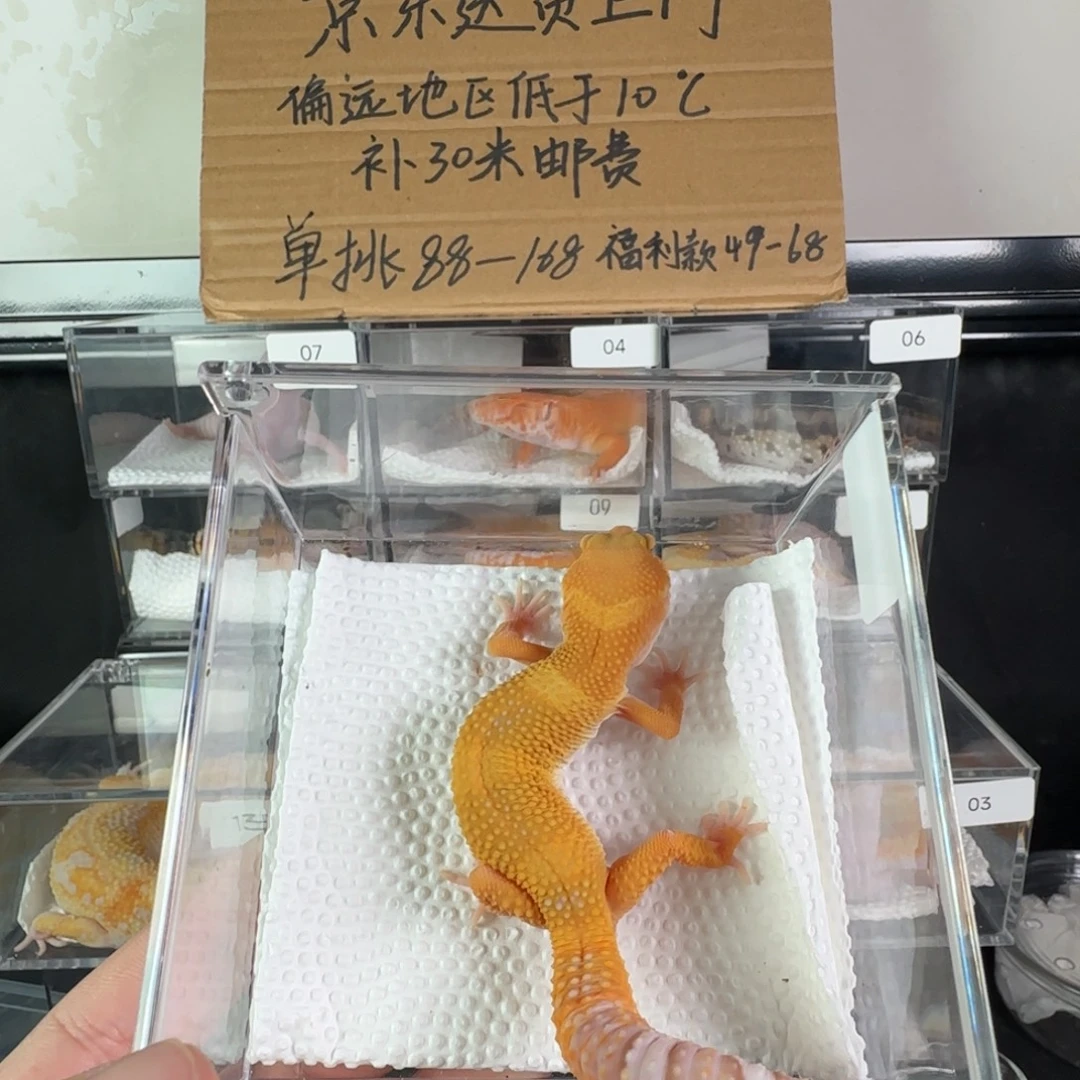 京东送货上门
偏远地区低于10℃
补30米邮费
单挑88-168 福利款49-68
07
04
06
09
03
13